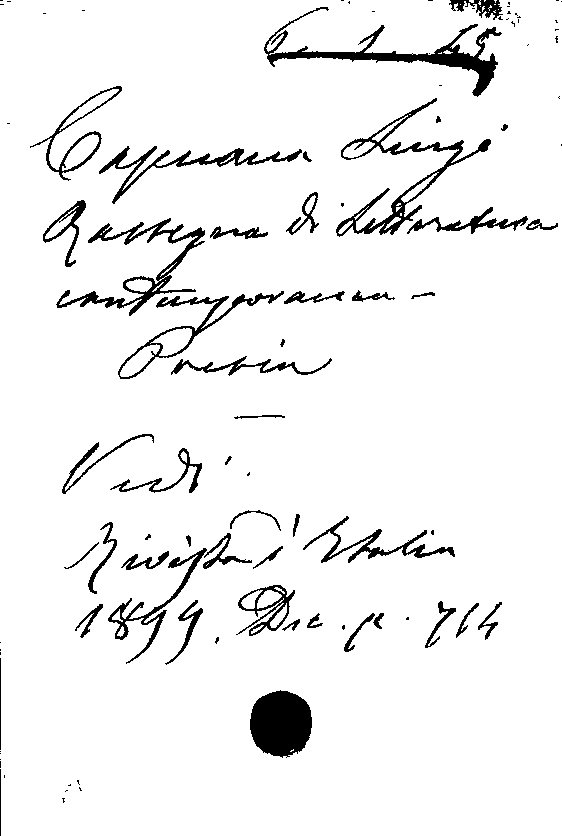 6. 1. 45
Capuana Luigi
Rassegna di Letteratura
contemporanea –
Poesia
—
Vedi
Rivista d'Italia
1899. Dic. p. 714